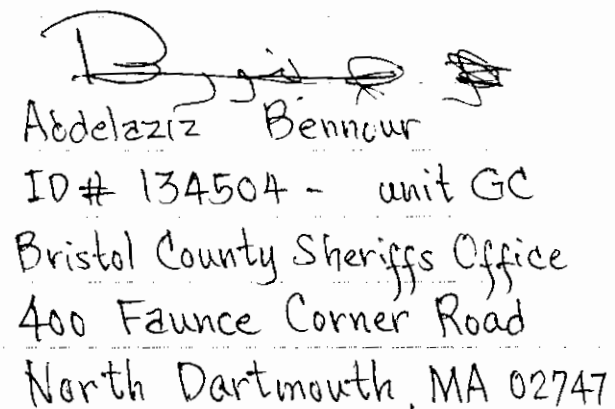 Abdelaziz Bennour
ID# 134504 - unit GC
Bristol County Sheriffs Office
400 Faunce Corner Road
North Dartmouth, MA 02747